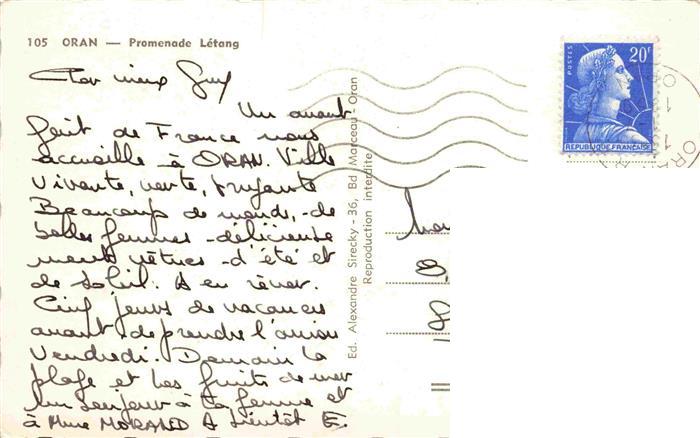 105 ORAN — Promenade Létang
Cher vieux Guy
Un avant
goût de France nous
accueille à ORAN. Ville
vivante, verte, bruyante
Beaucoup de monde, de
belles femmes délicieuse
ment vêtues d'été et
de soleil. A en rêver.
Cinq jours de vacances
avant de prendre l'avion
Vendredi. Demain la
plage et les fruits de mer
Un bonjour à ta femme et
à Mme MORAND A bientôt E.
Ed. Alexandre Sirecky - 36, Bd Marceau - Oran
Reproduction interdite
POSTES
20F
REPUBLIQUE FRANÇAISE
ORAN